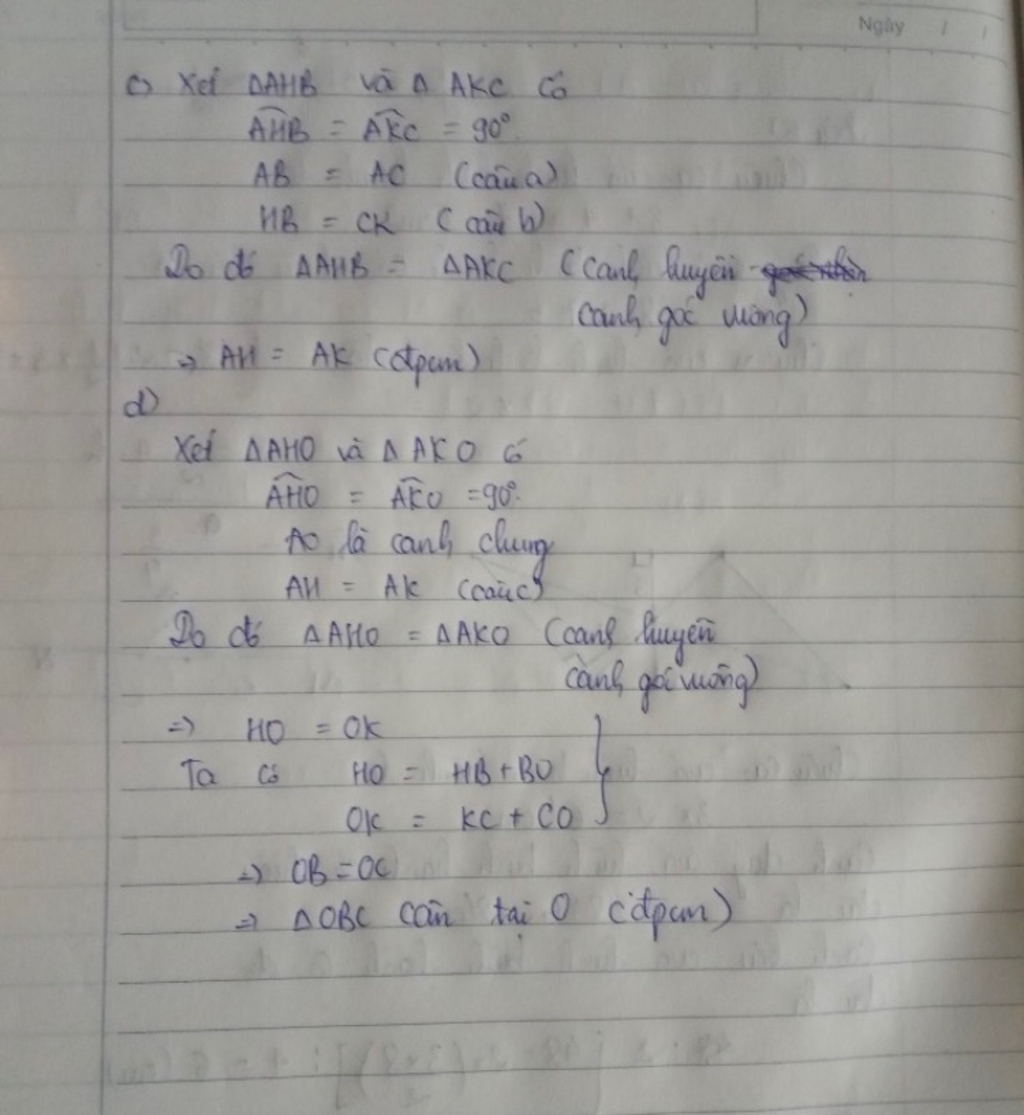 Ngày / /
c) Xét ΔAHB và Δ AKC có
AHB = AKC = 90°
AB = AC (câu a)
HB = CK (câu b)
Do đó ΔAHB = ΔAKC (cạnh huyền
cạnh góc vuông)
=> AH = AK (đpcm)
d)
Xét ΔAHO và Δ AKO có
AHO = AKO = 90°.
AO là cạnh chung
AH = AK (câu c)
Do đó ΔAHO = ΔAKO (cạnh huyền
cạnh góc vuông)
=> HO = OK
Ta có HO = HB + BO
OK = KC + CO
=> OB = OC
=> ΔOBC cân tại O (đpcm)